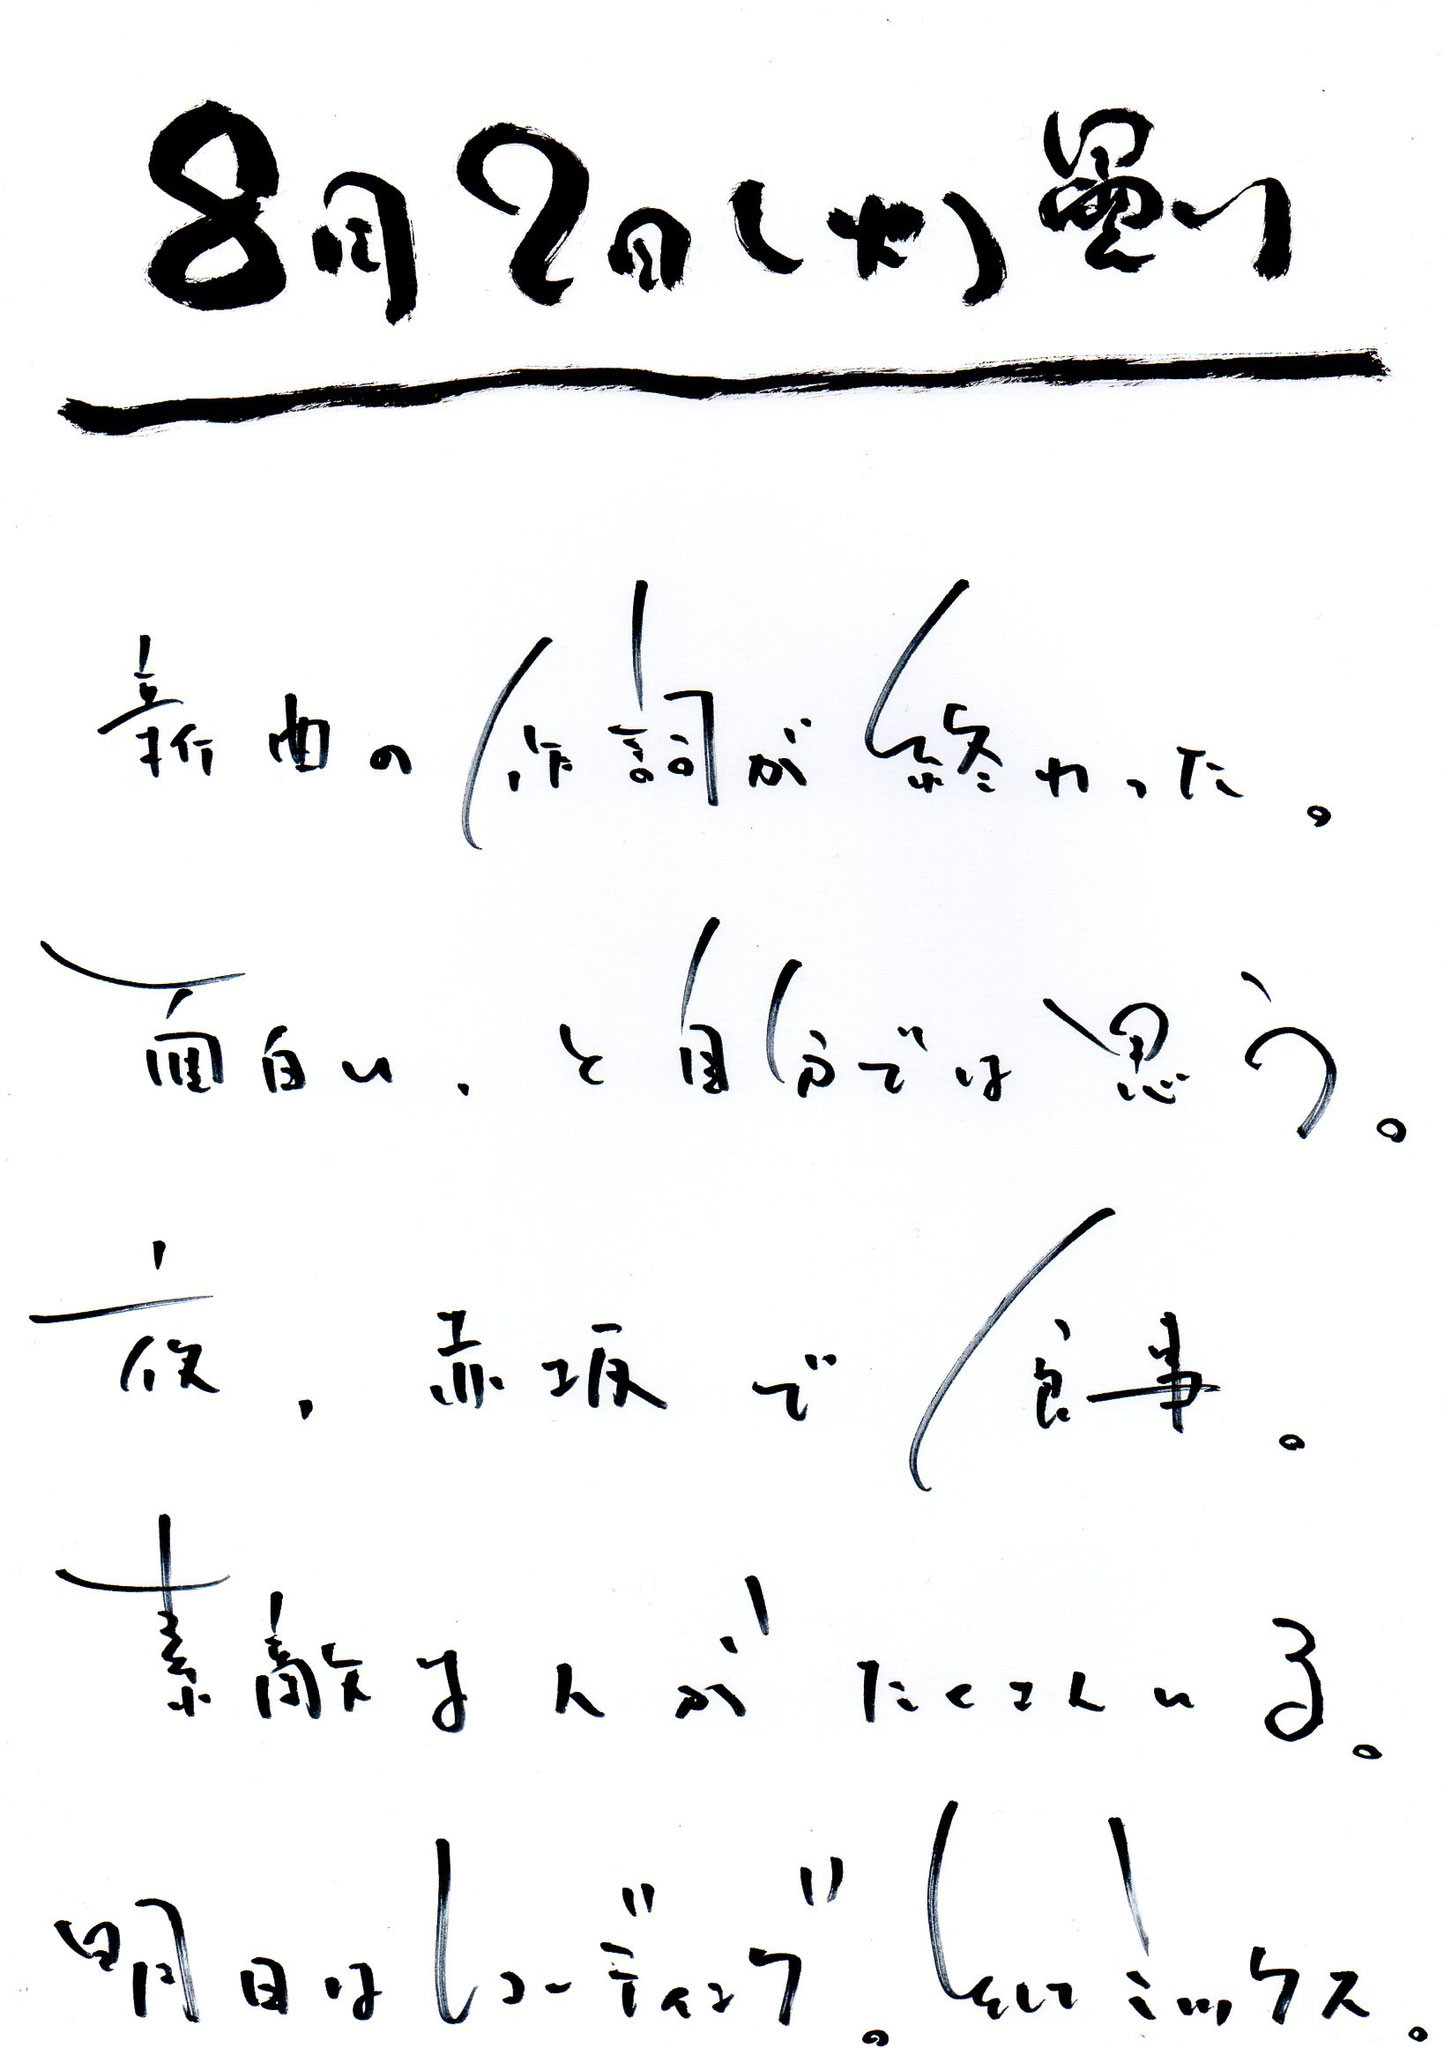 8月2日(火)曇り
新曲の作詞が終わった。
面白い、と自分では思う。
夜、赤坂で食事。
素敵な人がたくさんいる。
明日はレコーディング。そしてミックス。